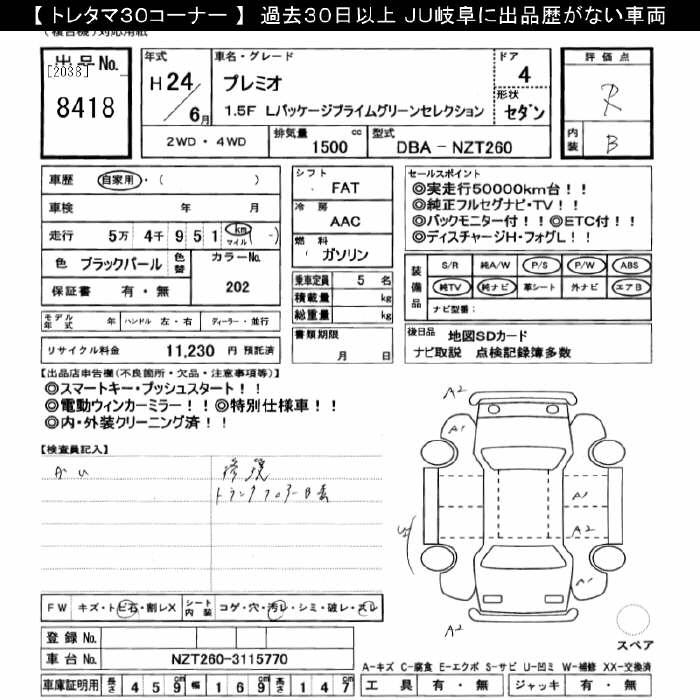 【 トレタマ30コーナー 】 過去30日以上 JU岐阜に出品歴がない車両
出品No.
[2038]
8418
年式
H24/6月
車名・グレード
プレミオ
1.5F Lパッケージプライムグリーンセレクション
ドア
4
形状
セダン
評価点
R
内装
B
2WD・4WD
排気量
1500 cc
型式
DBA-NZT260
車歴 自家用・( )
車検 年 月
走行 5万 4千 9 5 1 km マイル (-)
色 ブラックパール 色替
カラーNo.
202
保証書 有・無
モデル年式 年 ハンドル 左・右 ディーラー・並行
リサイクル料金 11,230 円 預託済
シフト
FAT
冷房
AAC
燃料
ガソリン
乗車定員 5 名
積載量 kg
総重量 kg
書類期限
月 日
セールスポイント
◎実走行50000km台！！
◎純正フルセグナビ・TV！！
◎バックモニター付！！◎ETC付！！
◎ディスチャージH・フォグL！！
装備品
S/R 純A/W P/S P/W ABS
純TV 純ナビ 革シート 外ナビ エアB
ナビ型番：
後日品 地図SDカード
ナビ取説 点検記録簿多数
【出品店申告欄(不良箇所・欠品・注意事項等)】
◎スマートキー・プッシュスタート！！
◎電動ウィンカーミラー！！◎特別仕様車！！
◎内・外装クリーニング済！！
【検査員記入】
修復
トランクフロアー
A2
A1
A1
A2
A1
A2
スペア
FW キズ・トビ石・割レX
シート内装 コゲ・穴・汚レ・シミ・破レ・スレ
登録No.
車台No. NZT260-3115770
A-キズ C-腐食 E-エクボ S-サビ U-凹ミ W-補修 XX-交換済
車庫証明用 長さ 4 5 9 cm 幅 1 6 9 cm 高さ 1 4 7 cm
工具 有・無 ジャッキ 有・無